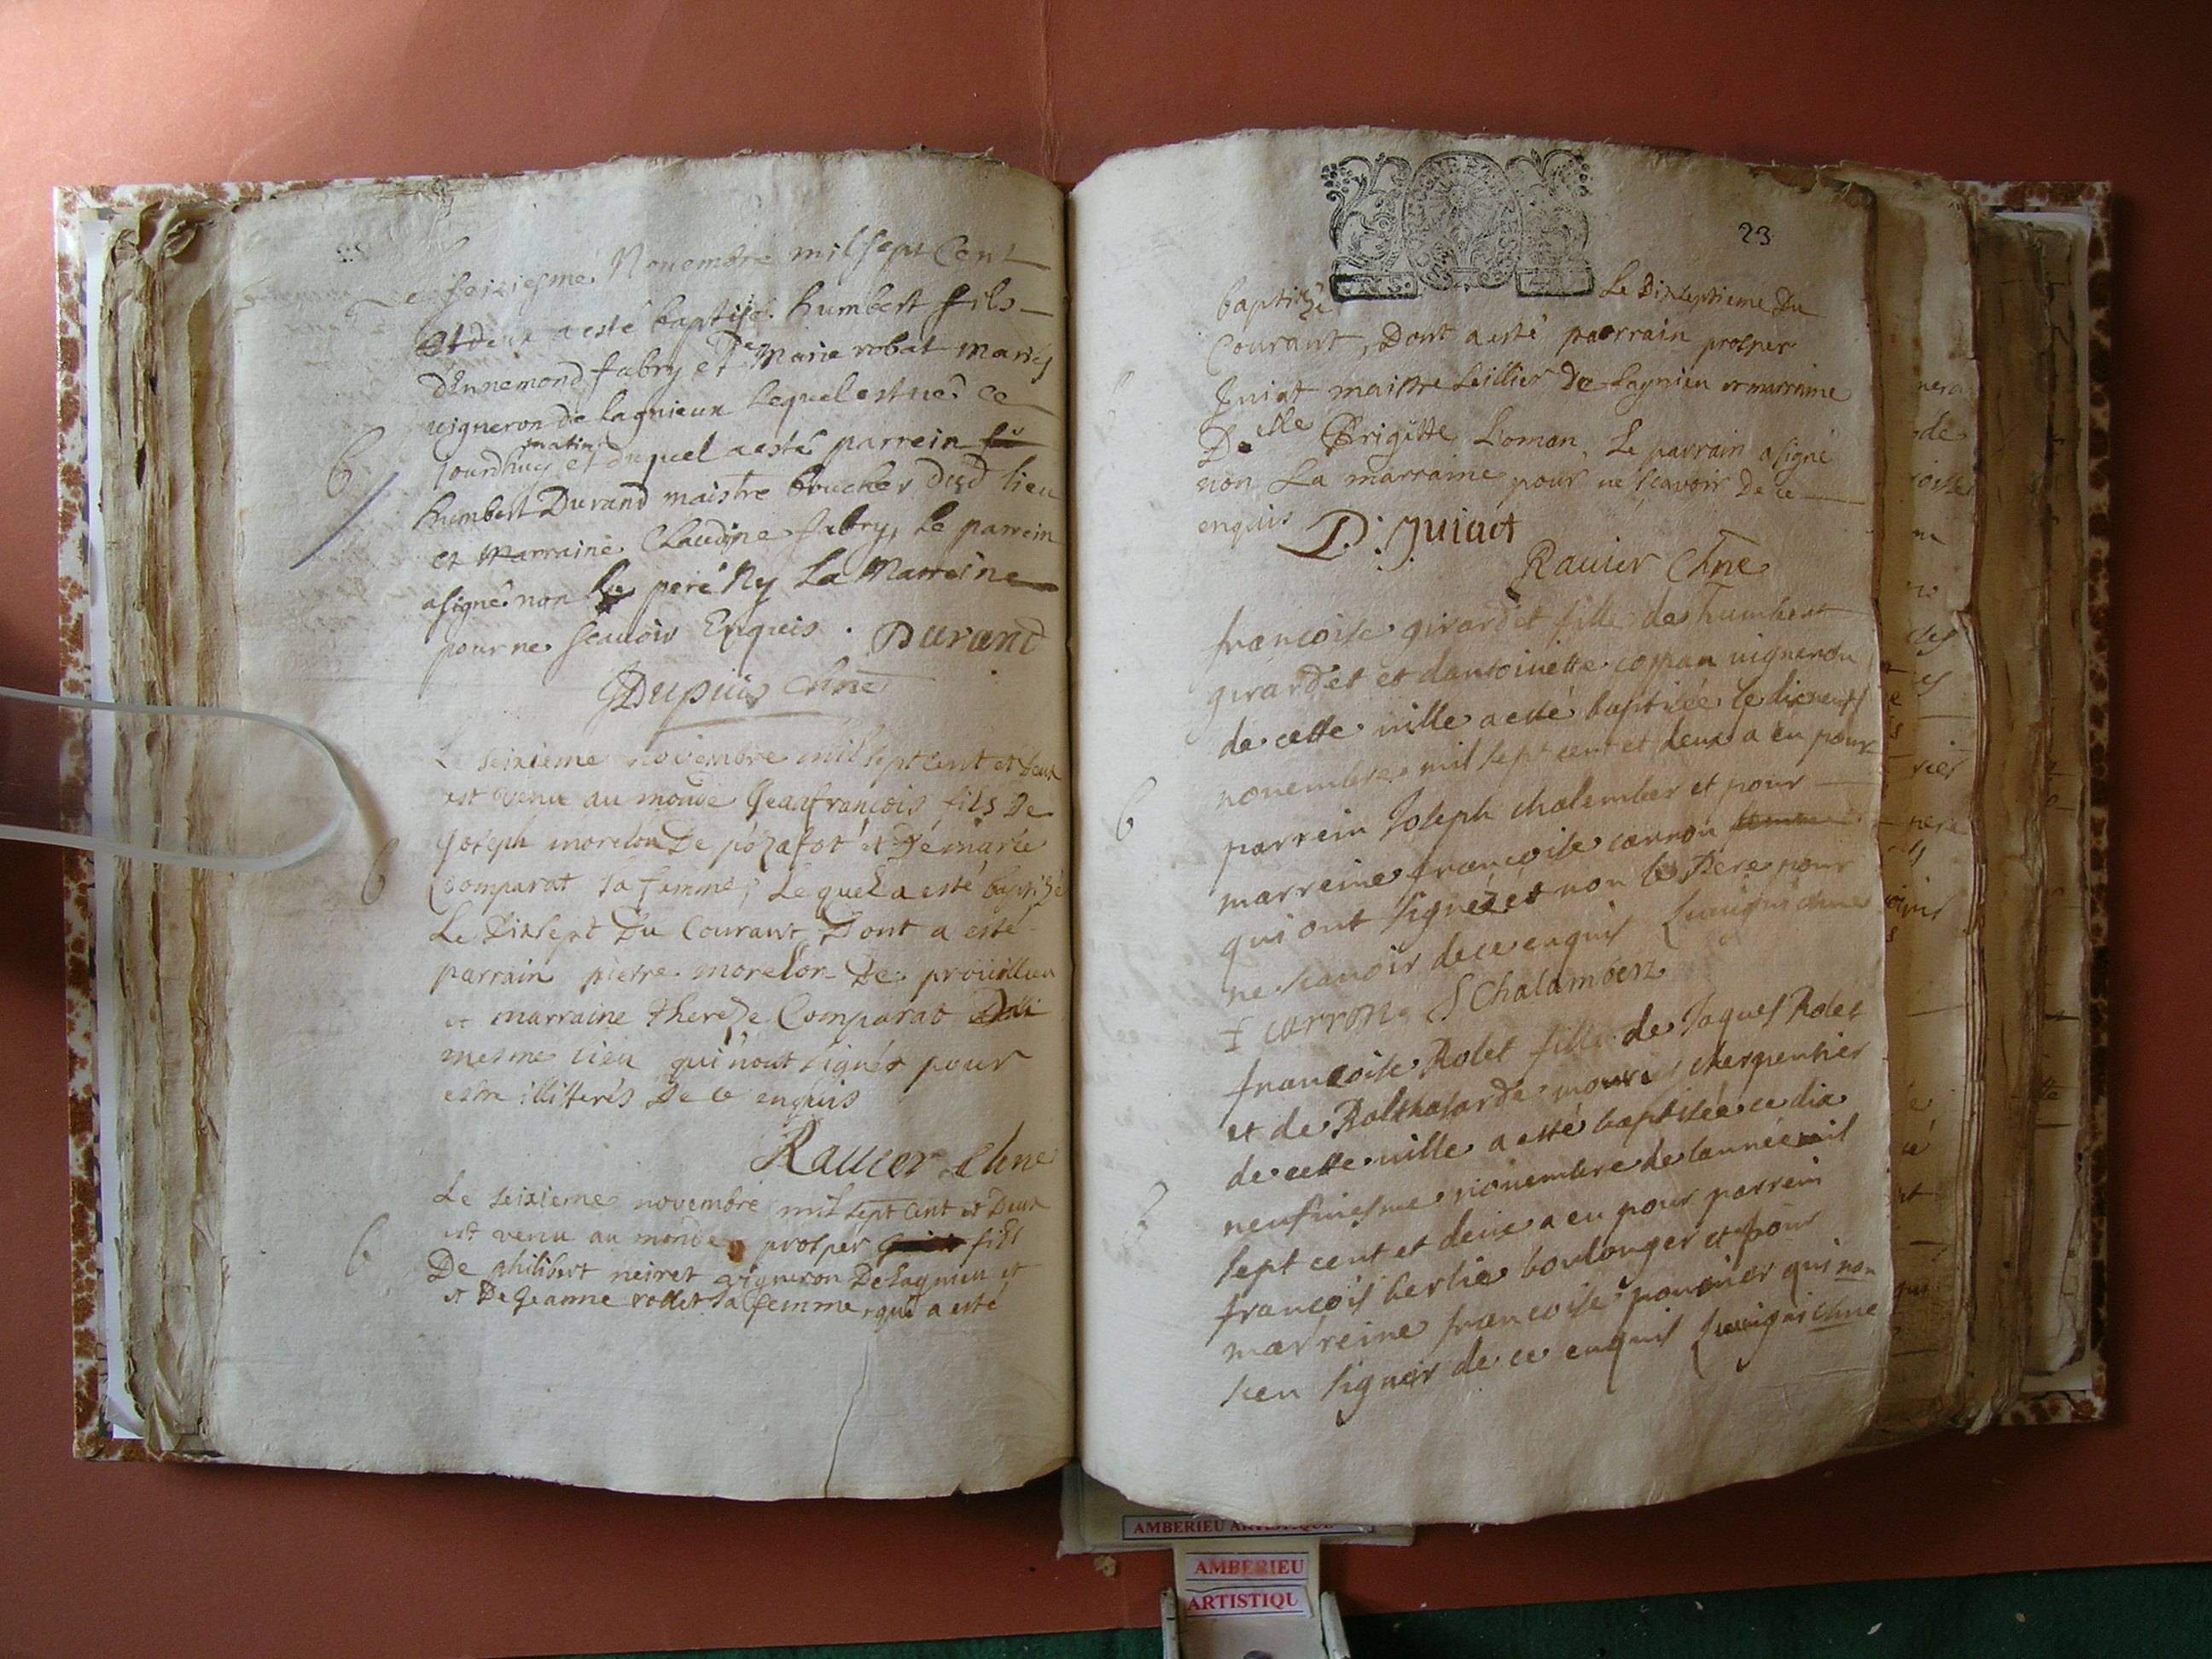 Le seiziesme Novembre mil sept Cent
et deux a esté baptisé humbert fils
d'Ennemond fabry et De Marie robat mariés
vigneron de lagnieux lequel est né ce
matin
jourdhuy et duquel a esté parrein
humbert Durand maistre boucher dud lieu
et Marraine Claudine fabry, le parrein
a signé non le pere Ny La Marreine
pour ne scauoir Enquis . Durand
Dupuis Chne
B
Le seizieme novembre mil sept cent et deux
est venu au monde Jean francois fils De
Joseph morelon De pozafot et De marie
Comparat sa femme, Lequel a esté baptizé
Le Dixsept Du Courant, Dont a esté
parrain pierre morelon De prouillieu
et marraine therese Comparat
mesme lieu qui n'ont signés pour
estre illiterés De ce enquis
Rauier Chne
b
Le seizieme novembre mil sept cent et Deux
est venu au monde prosper fils
De philibert neiret vigneron De Lagnieu et
et De Jeanne rollet sa femme, qui a esté
b
23
baptizé Le Dixseptieme Du
Courant, Dont a esté parrain prosper
Juiat maistre sellier De Lagnieu et marraine
Delle Brigitte Loman, Le parrain a signé
non La marraine pour ne scavoir De ce
enquis P. Juiat
Rauier Chne
francoise girardet fille des humbert
girardet et dantoinette coppan vigneron
de cette ville a esté baptisée le dixneuf
novembre mil sept cent et deux a eu pour
parrein Joseph chalember et pour
marreine francoise carron
qui ont signéz et non le Pere pour
ne scauoir de ce enquis chne
f carron J Chalamber
b
francoise Rolet fille de Jaques Rolet
et de Balthasarde charpentier
de cette ville a esté baptisée ce dix
neufuiesme nouembre de lannée mil
sept cent et deux a eu pour parrein
francois berlie boulonger et pour
marreine francoise qui non
sceu signer de ce enquis chne
AMBERIEU ARTISTIQUE
AMBERIEU
ARTISTIQU